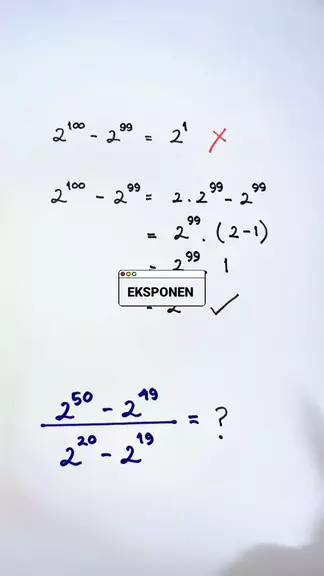 2^100 - 2^99 = 2^1 ✗
2^100 - 2^99 = 2 . 2^99 - 2^99
= 2^99 . (2-1)
= 2^99 . 1
EKSPONEN
= 2 ✓
(2^50 - 2^49) / (2^20 - 2^19) = ?